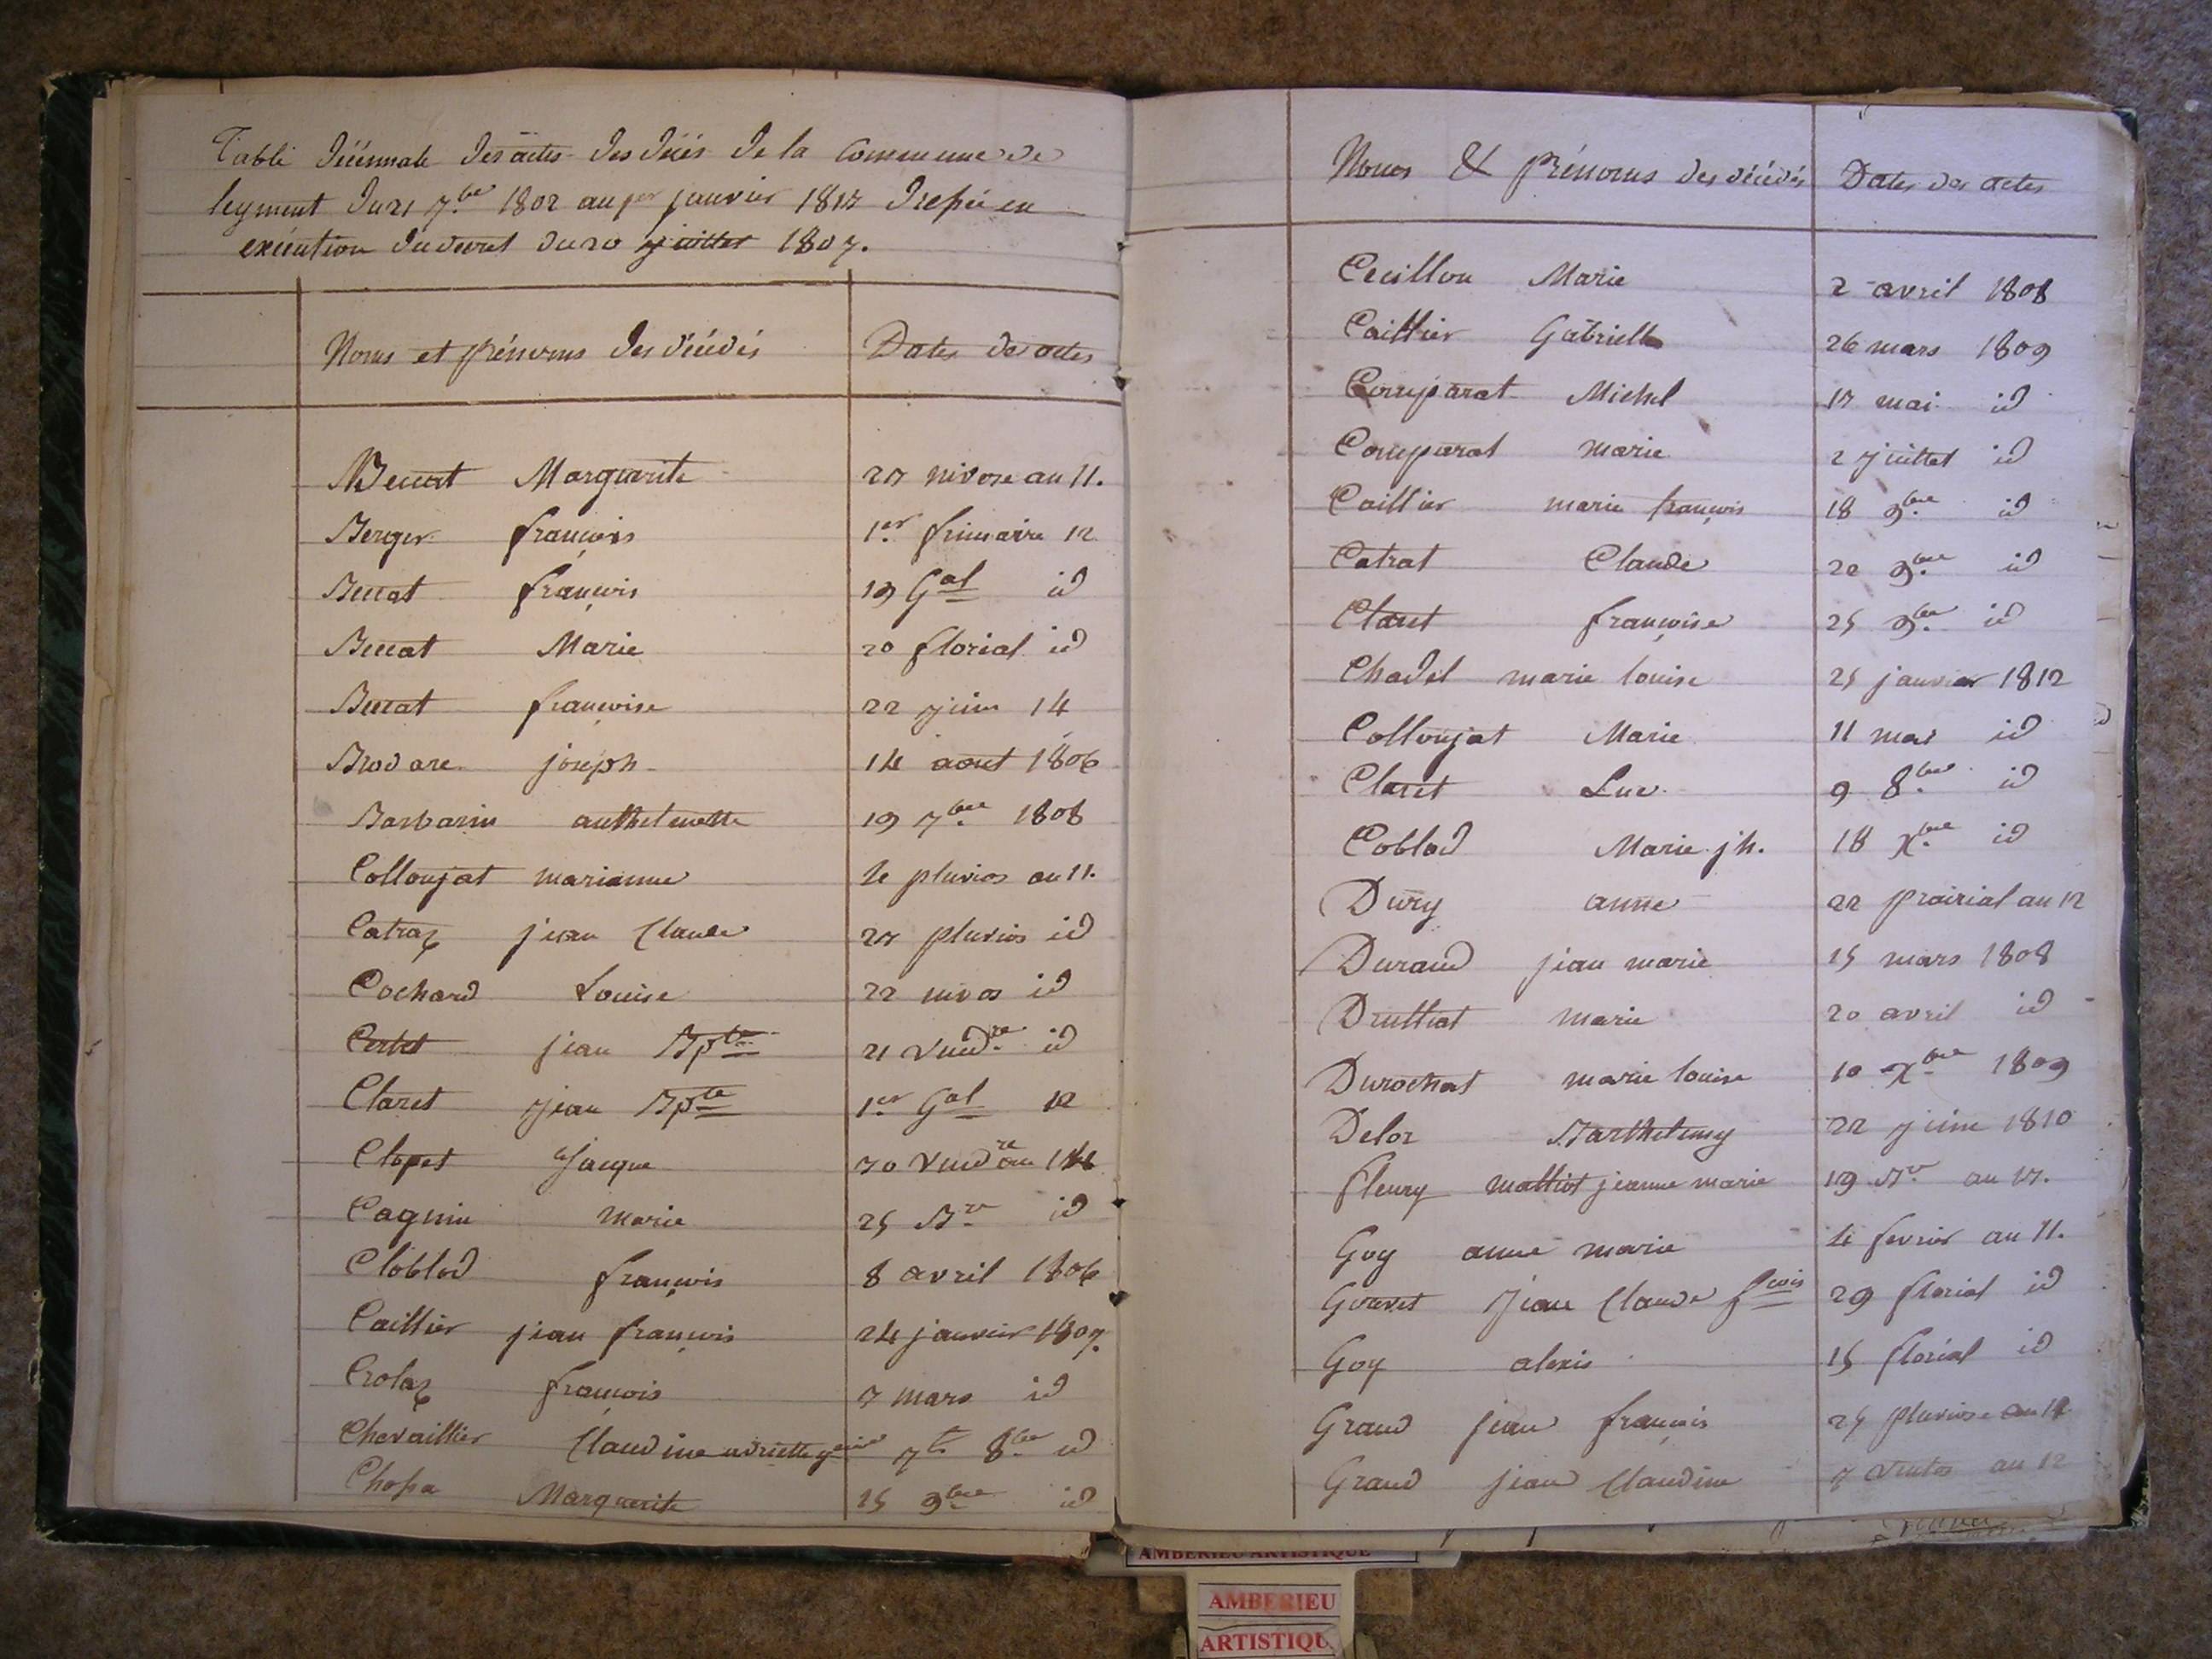 Table décennale des actes des décés de la Commune de
leyment du 21 7.bre 1802 au 1er janvier 1813 Dressée en
exécution du decret du 20 juillet 1807.
Noms et prénoms des décédés Dates des actes
Beccat Marguerite 23 nivose an 11.
Berger françois 1.er frimaire 12
Beccat françois 19 Gal id
Beccat Marie 20 florial id
Beccat françoise 22 juin 14
Brodare joseph 14 aout 1806
Barbarin anthelmette 19 7bre 1808
Colloujat marianne 4 pluvios an 11.
Catraz jean Claude 23 pluvios id
Cochard Louise 22 nivos id
jean Bpte 21 Vend.re id
Claret jean Bpte 1.er Gal 12
Clopet Jacque 30 Vend.re an 14
Cagnin marie 25 Bre id
Cloblod françois 8 avril 1806
Caillier jean françois 24 janvier 1807.
Crolaz françois 3 mars id
Chevaillier Claudine 8bre id
Chossa Marguerite 15 9bre id
Noms & prénoms des décédés Dates des actes
Cecillon Marie 2 avril 1808
Caillier Gabrielle 26 mars 1809
Comparat Michel 13 mai id
Comparat marie 2 juillet id
Caillier marie françois 18 9bre id
Catrat Claude 22 9bre id
Claret françoise 25 9bre id
Chadel marie louise 25 janvier 1812
Colloujat Marie 11 mai id
Claret Luc 9 8bre id
Coblod Marie jh. 18 Xbre id
Dury anne 22 prairial an 12
Durand jean marie 15 mars 1808
Druttiat marie 20 avril id
Durochat marie louise 10 Xbre 1809
Deloz Barthelemy 22 juin 1810
fleury mattiot jeanne marie 19 Bre an 13.
Goy anne marie 4 fevrier an 11.
Gouvet Jean Claude fcois 29 florial id
Goy alexis 15 florial id
Grand jean françois 25 pluviose an 12
Grand jean Claudine 7 ventos an 12
AMBERIEU ARTISTIQUE
AMBERIEU
ARTISTIQU